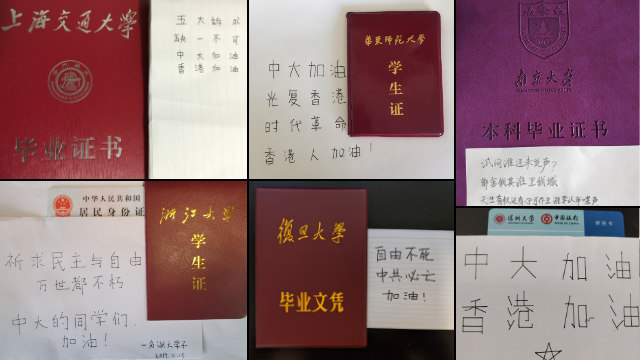 上海交通大学
毕业证书
五大訴求
缺一不可
中大加油
香港加油
華東師范大學
学生证
中大加油
光复香港
时代革命
香港人加油!
南京大學
NANJING UNIVERSITY
本科毕业证书
试问谁还未发声?
都舍我其谁卫我城
天生有权还有心可作主 谁要认命噤声
中华人民共和国
居民身份证
祈求民主与自由
万世都不朽
中大的同学们,
加油!
一名浙大学子
2019.11.15
浙江大學
学生证
復旦大學
毕业文凭
自由不死
中共必亡
加油!
深圳大学
中国银行
中大加油
香港加油